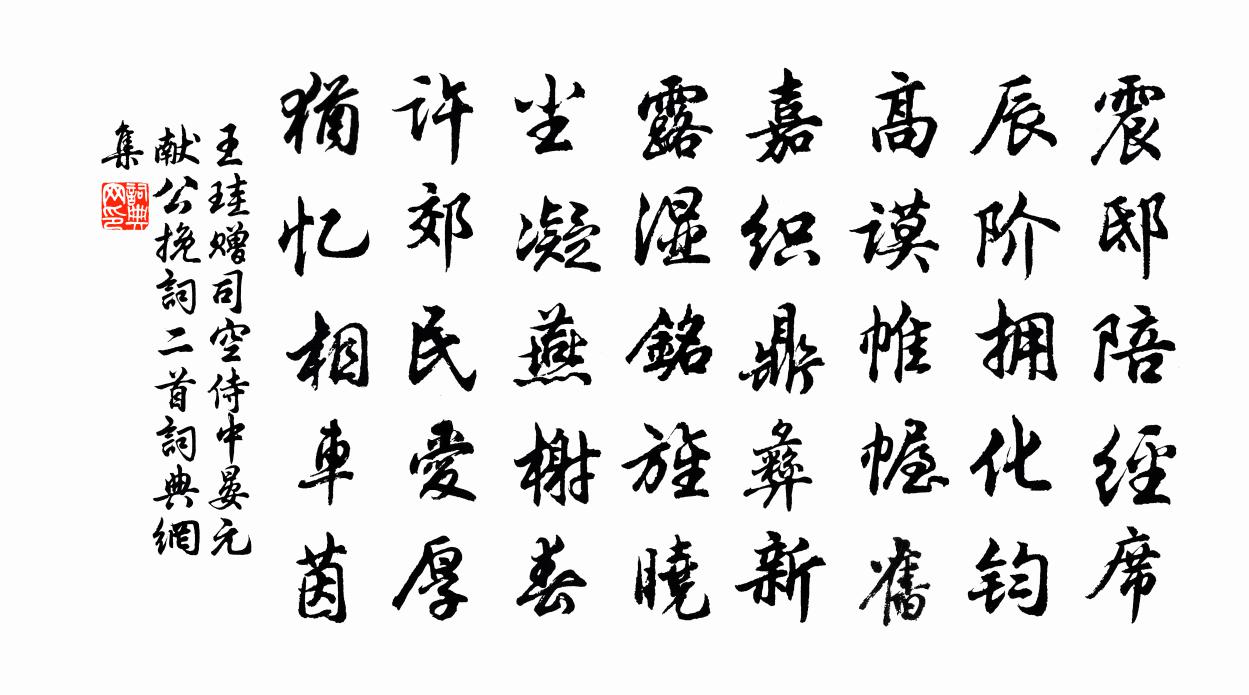 震邸陪經席
辰阶拥化钧
高谟帷幄舊
嘉织鼎彝新
露湿銘旌曉
尘凝燕榭春
许郊民愛厚
猶忆相車茵
王珪赠司空侍中晏元
献公挽詞二首詞典網
集
詞典
网印